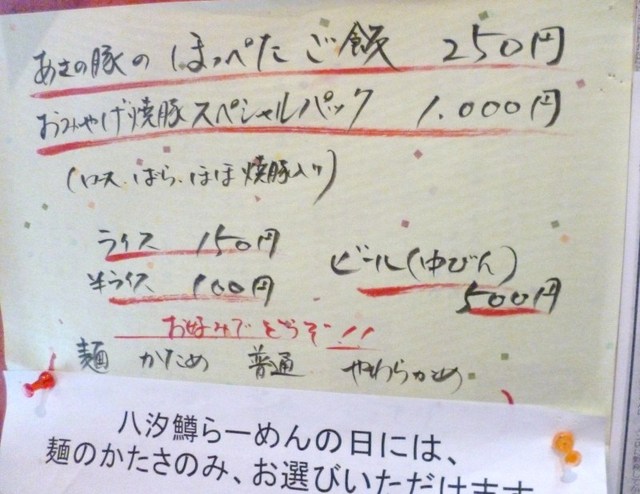 あさの豚の ほっぺた ご飯 250円
おみやげ焼豚スペシャルパック 1.000円
(ロース.ばら.ほほ焼豚入り)
ライス 150円
半ライス 100円
ビール(中びん)
500円
お好みでどうぞ!!
麺 かため 普通 やわらかめ
八汐鱒らーめんの日には、
麺のかたさのみ、お選びいただけます